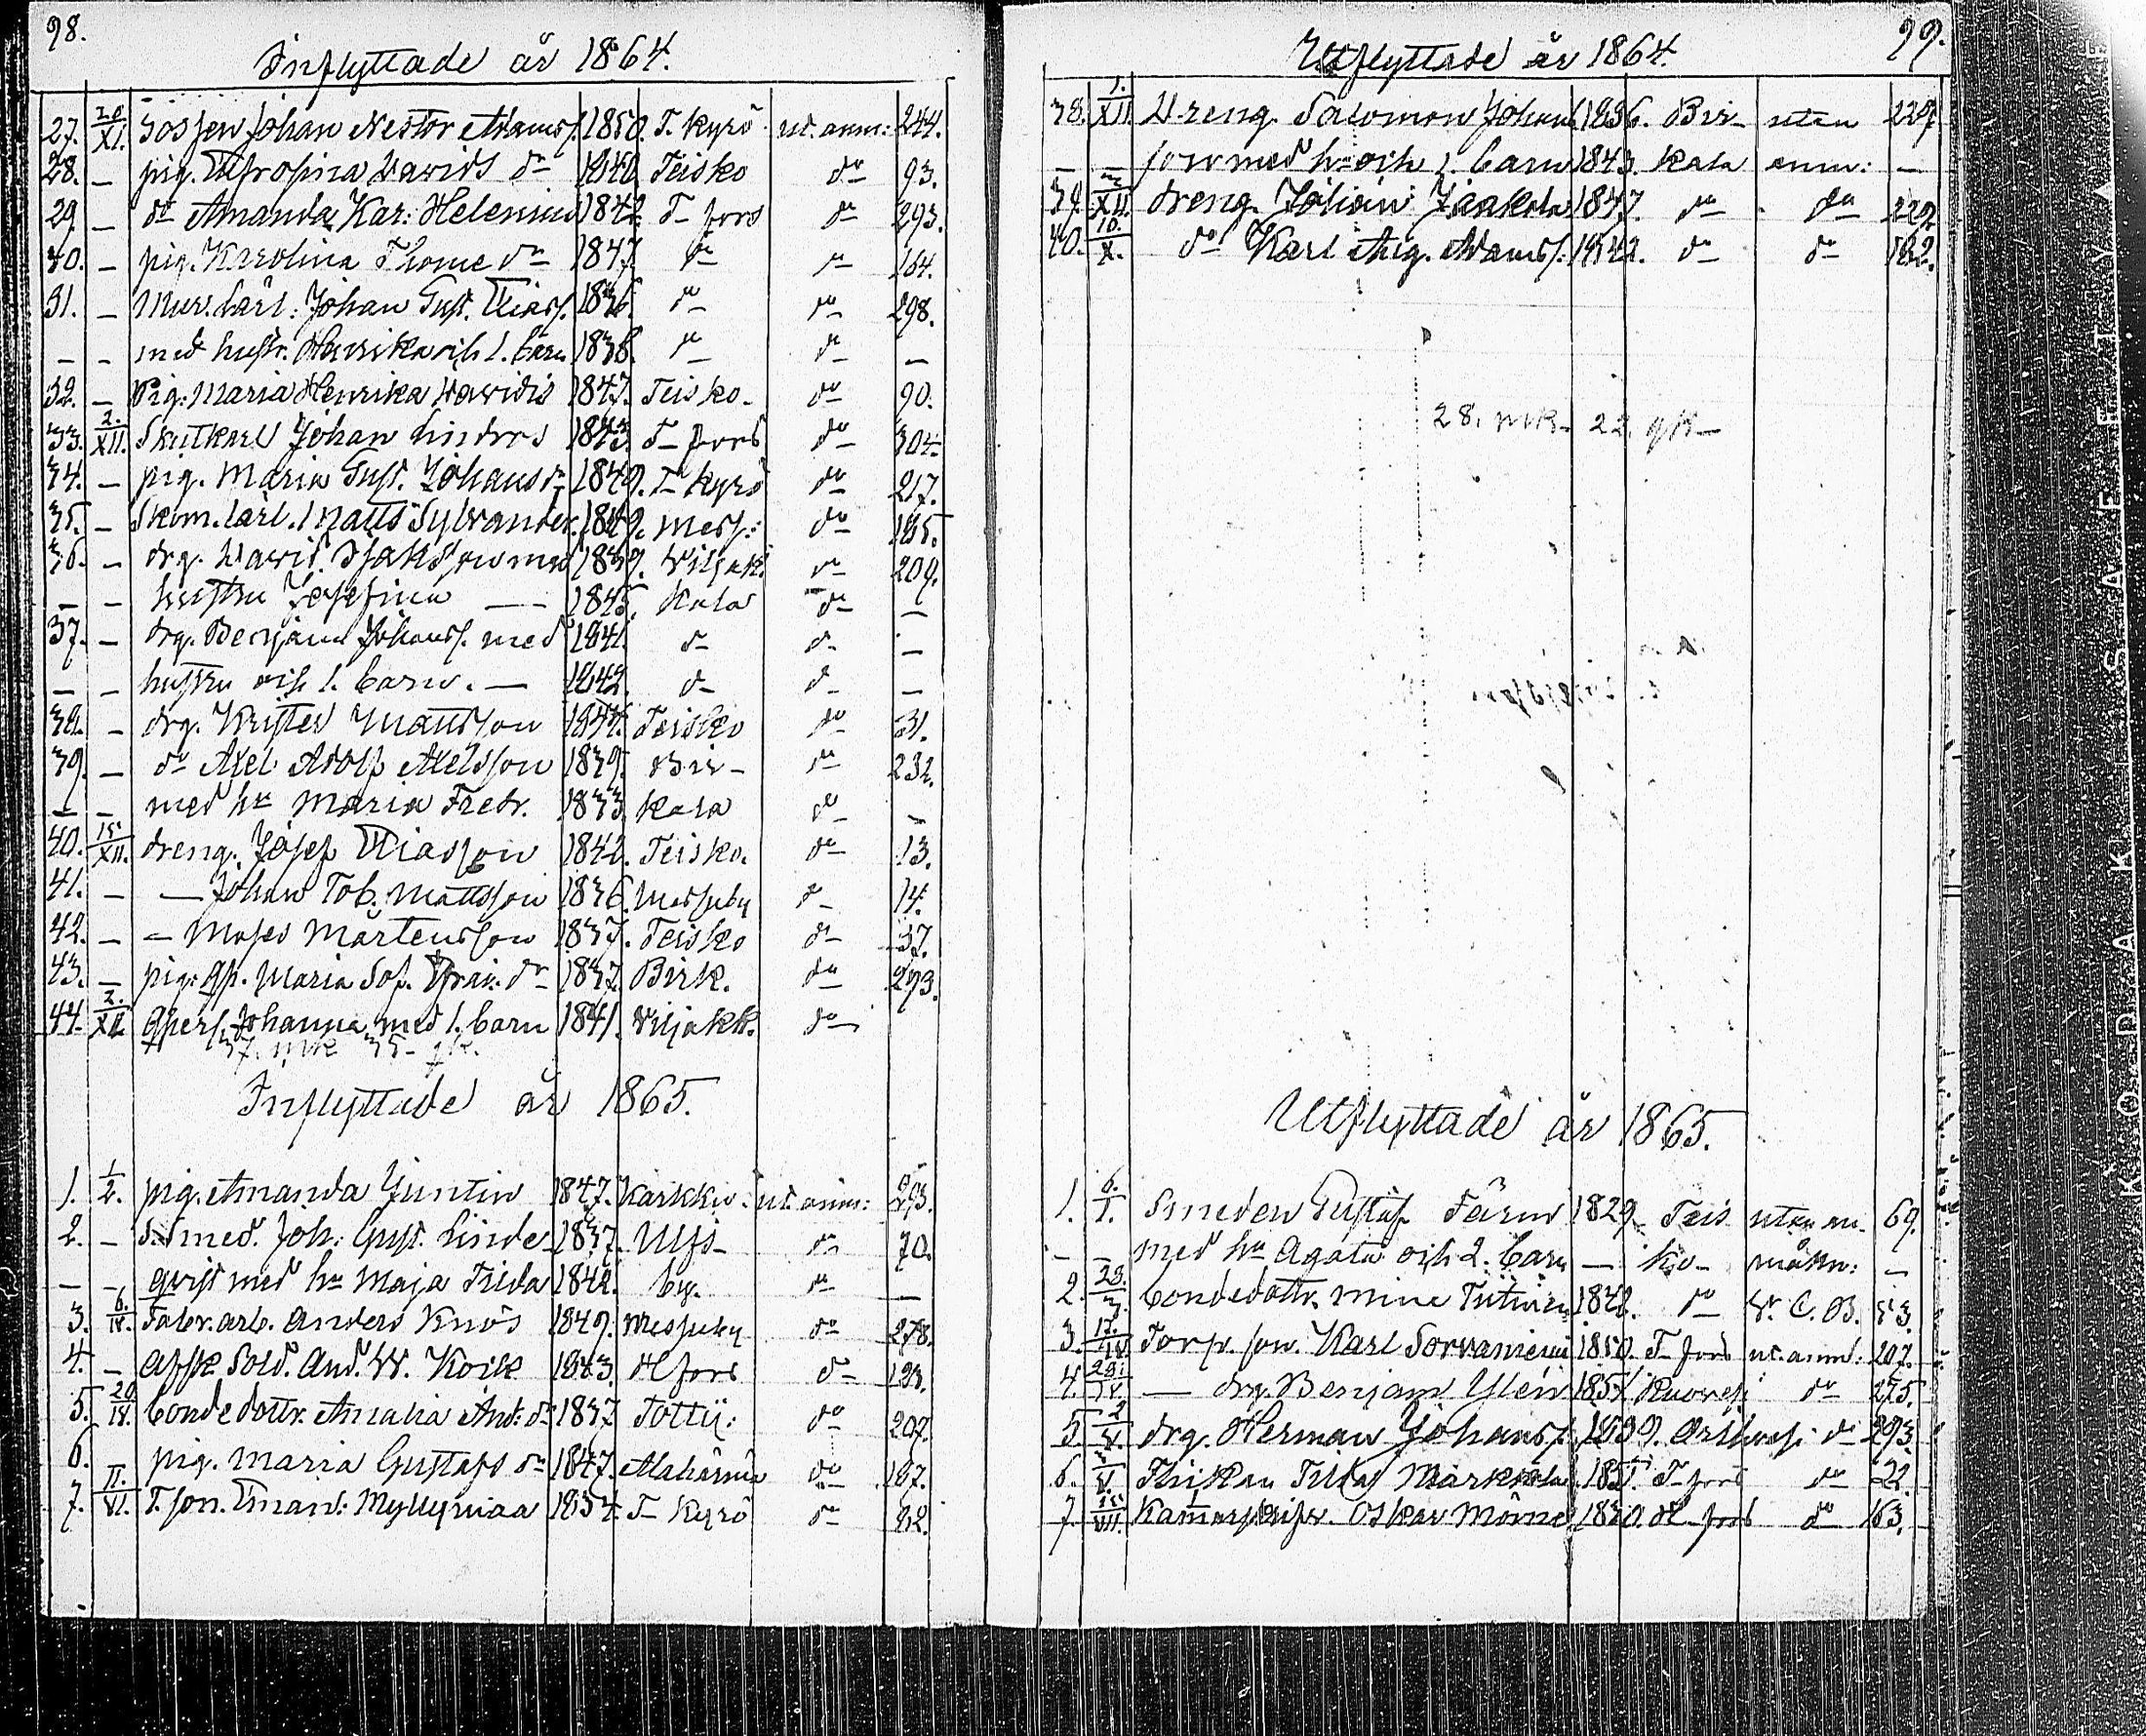 98.
Inflyttade år 1864.
27. 20/XI. Gossen Johan Nestor Adamss. 1850. T. Kyrö ut. anm: 244.
28. — pig. Efrosina Davids dr 1840 Teisko do 93.
29. — dr Amanda Kar: Helenius 1842 T- fors do 293.
30. — pig. Karolina Thome dr 1847. do do 164.
31. — Mur. lärl: Johan Gust. Eliass. 1836. do do 298.
— — med hustr. Henrika och 1. barn 1838. do do —
32. — Pig: Maria Henrika Davidis 1847. Teisko- do 90.
33. 2./XII. Skutkarl Johan Lindros 1843. T- fors do 304.
34. — pig. Maria Gust. Johans dr 1849. T- Kyrö do 217.
35. — Skom. lärl. Matts Sylvander. 1849. Mess: do 185.
36. — drg. David Isaksson med 1839. Viljak: do 209.
— — hustru Josefina — 1845. kala do —
37. — drg. Benjam Johanss. med 1841. do do —
— — hustru och 1. barn. — 1842. do do —
38. — drg. Krister Mattsson 1844. Teisko do 31.
39. — do Axel Adolf Axelsson 1839. Bir- do 232.
— — med hu Maria Fredr. 1833. kala do —
40. 15/XII. dreng. Josef Eliasson 1842. Teisko. do 13.
41. — — Johan Tob. Mattsson 1836. Messuby do 14.
42. — — Moses Mårtensson 1837. Teisko do 37.
43. — pig. Maria Sof. dr 1837. Birk. do 293.
44. 2./XII. Johanna med 1. barn 1841. Viljakk. do
37. mk 35- pk.
Inflyttade år 1865.
1. 1/2. pig. Amanda Juntin 1847. Karkku. ut. anm: 293.
2. — Smed. Joh: Gust. Linde- 1837. Ulfs- do 70.
— — qvist med hu Maja Tilda 1842. by. do —
3. 6./IV. Fabr. arb. Anders Knös 1849. Messuby do 278.
4. — Afsk. Sold. And. W. Koik 1843. H fors do 193.
5. 20/IV. bondedottr. Amalia And: dr 1837 Tottij: do 207.
6. pig. Maria Gustafs dr 1847. do 187.
7. 11./VI. T. son. Eman: Myllymaa 1834. T- Kyrö do 82.
99.
Utflyttade år 1864.
38. 1./XII. Dreng. Salomon Johans 1836. Bir- utan 229
— — son med hu och 1. barn 1843. kala anm: —
39. XII. dreng. Julian Jaakola 1847. do do 229
40. 10./X. do Karl Aug. Adamss. 1842. do do 182.
28. mk- 22. pk-
Utflyttade år 1865.
1. 6./1. Smeden Gustaf Färm 1829. Teis utan an- 69.
— — med hu Agata och 2. barn — ko- märkn: —
2. 23. bondedottr. Mina 1842. do V. C. B. 53.
3. 17./IV. Torp. son. Karl Sorvaniemi 1850. T- fors ut. anm: 207.
4. 23./IV. — drg. Benjam Ylén 1851 Ruovesi do 275.
5. 2/V. drg. Herman Johanss. 1839. do 293.
6. V. Flickan Tilda Markkola 1851. T- fors do 22.
7. 15/VII. Oskar Mörne 1830. H- fors do 163.
KOPDAAKILSAAFETHYVAE